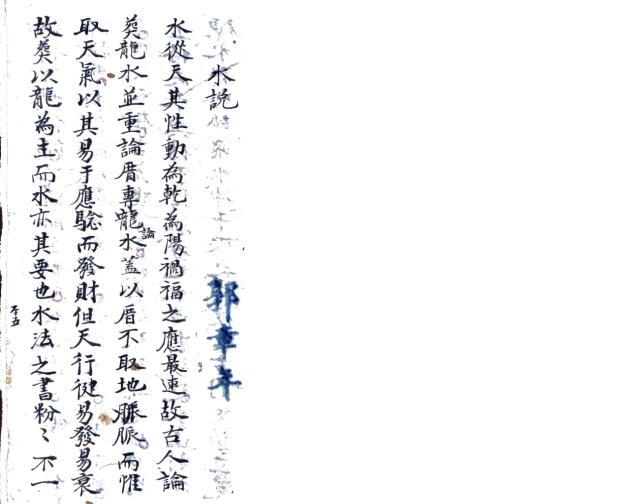 水說
郭章年
水從天其性動為乾為陽禍福之應最速故古人論
葬龍水並重論厝專論龍水蓋以厝不取地脈脈而惟
取天氣以其易于應驗而發財但天行健易發易衰
故葬以龍為主而水亦其要也水法之書粉〻不一
本五